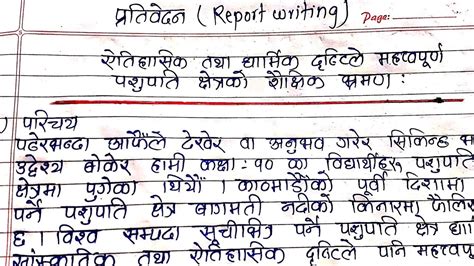 प्रतिवेदन (Report writing)
Page:
ऐतिहासिक तथा धार्मिक दृष्टिले महत्वपूर्ण
पशुपति क्षेत्रको शैक्षिक भ्रमण :
परिचय
पढेरभन्दा आफैँले देखेर वा अनुभव गरेर सिकिन्छ
उद्देश्य बोकेर हामी कक्षा : १० का विद्यार्थीहरू पशुपति
क्षेत्रमा पुगेका थियौँ । काठमाडौँको पूर्वी दिशामा
पर्ने पशुपति क्षेत्र बागमती नदीको किनारमा फैलिए
छ । विश्व सम्पदा सूचीभित्र पर्ने पशुपति क्षेत्र
सांस्कृतिक तथा ऐतिहासिक दृष्टिले पनि महत्वप